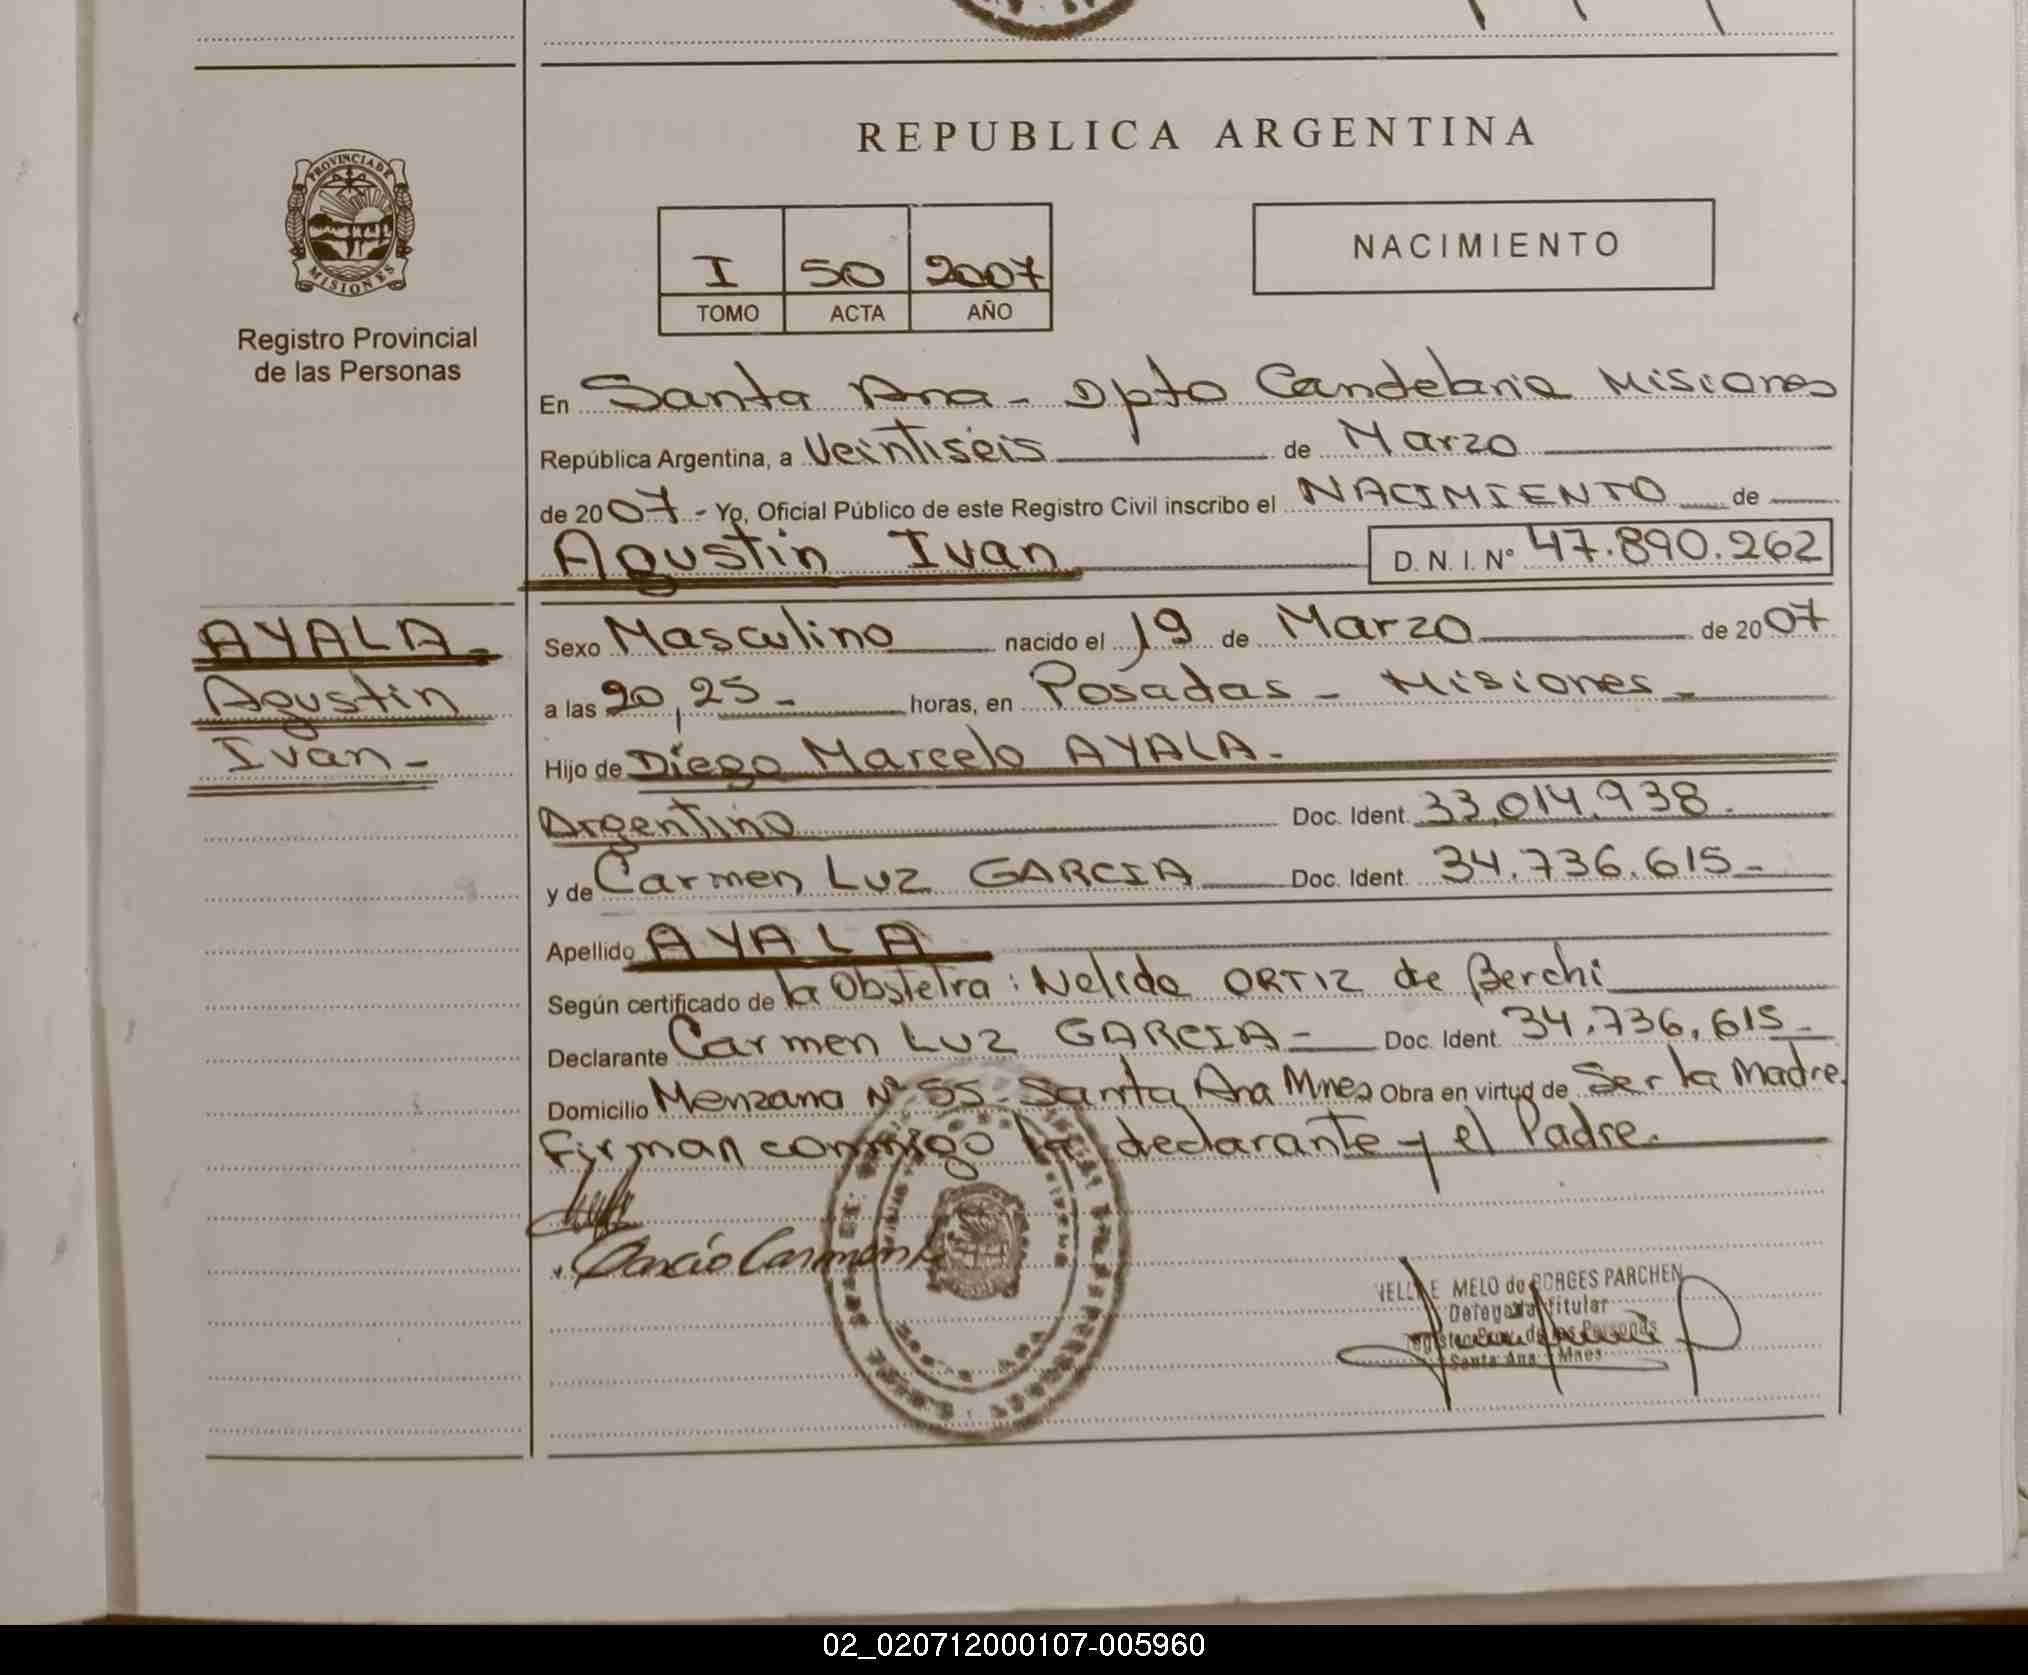 REPUBLICA ARGENTINA
PROVINCIA DE
MISIONES
Registro Provincial
de las Personas
NACIMIENTO
I 50 2007
TOMO ACTA AÑO
En Santa Ana - Dpto Candelaria Misiones
República Argentina, a Veintiséis de Marzo
de 2007 - Yo, Oficial Público de este Registro Civil inscribo el NACIMIENTO de
Agustin Ivan D. N. I. Nº 47.890.262
AYALA -
Agustin
Ivan -
Sexo Masculino nacido el 19 de Marzo de 2007
a las 20,25 - horas, en Posadas - Misiones -
Hijo de Diego Marcelo AYALA -
Argentino Doc. Ident. 33.014.938 -
y de Carmen Luz GARCIA Doc. Ident. 34.736.615 -
Apellido AYALA
Según certificado de la Obstetra: Nelida ORTIZ de Berchi
Declarante Carmen Luz GARCIA - Doc. Ident. 34.736.615 -
Domicilio Menzana Nº 55 - Santa Ana Mnes Obra en virtud de Ser la Madre.
Firman conmigo la declarante y el Padre.
Garcia Carmen L
NELLY E MELO de BORGES PARCHEN
Delegada Titular
Personas
Santa Ana - Mnes
02_020712000107-005960